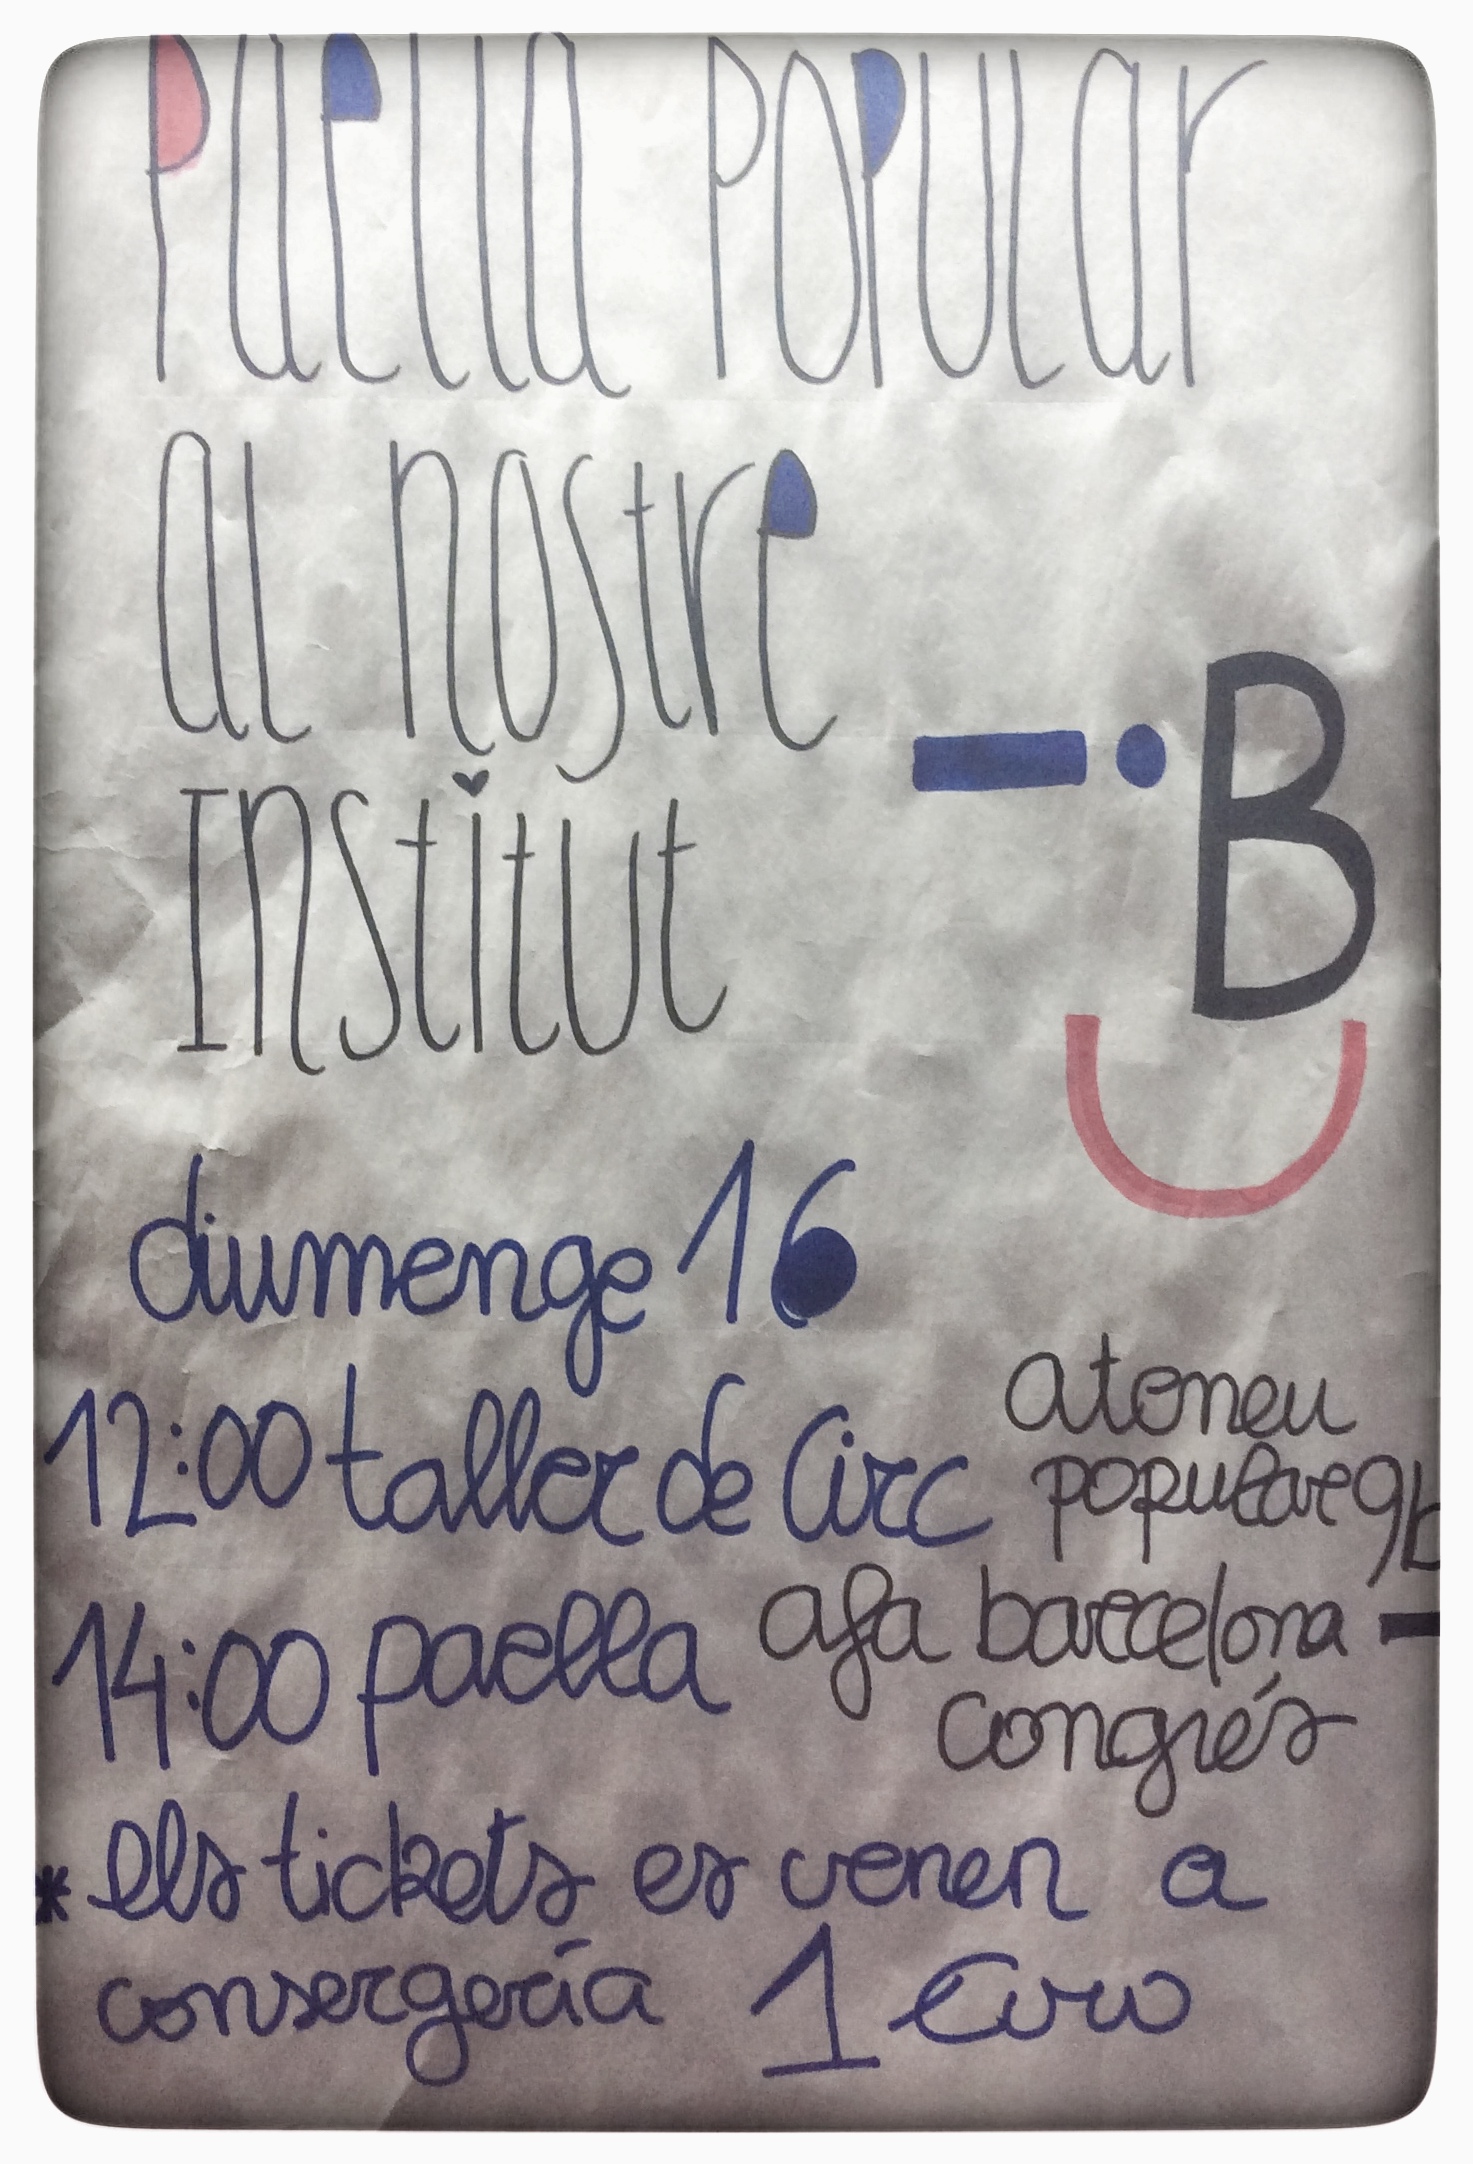 Paella Popular
al nostre
Institut
B
diumenge 16
12:00 taller de Circ
ateneu
popular 9b
14:00 paella
afa barcelona -
congrés
* els tickets es venen a
consergería 1 Euro